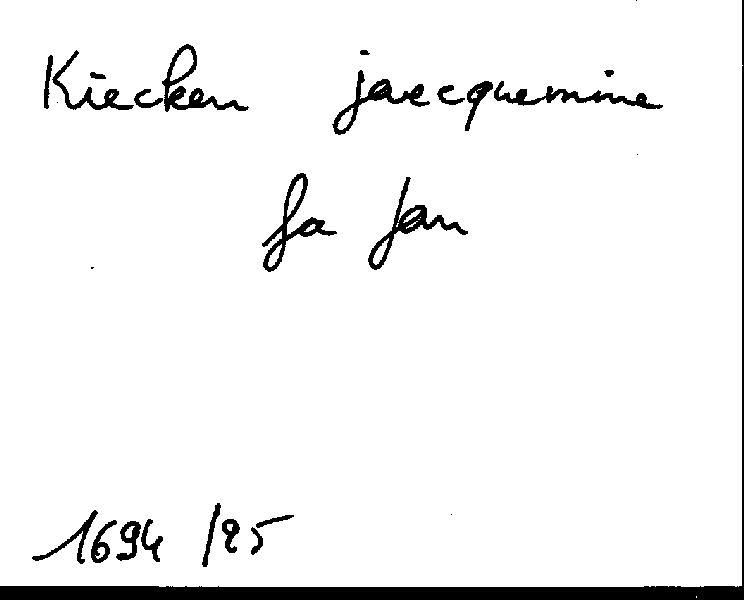 Kiecken jaecquemine
fa Jan
1694 /25